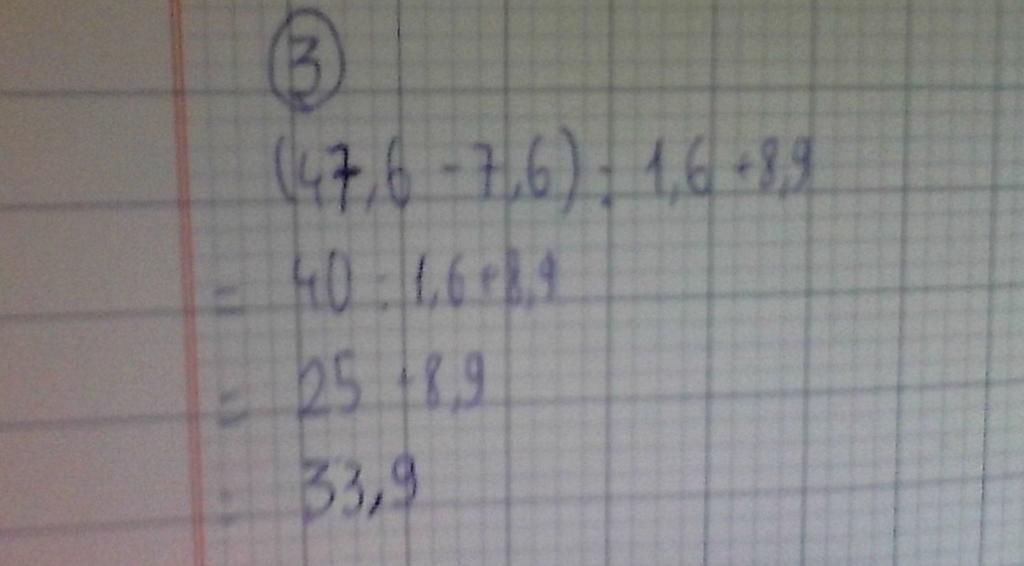 3
(47,6 - 7,6) : 1,6 + 8,9
= 40 : 1,6 + 8,9
= 25 + 8,9
= 33,9